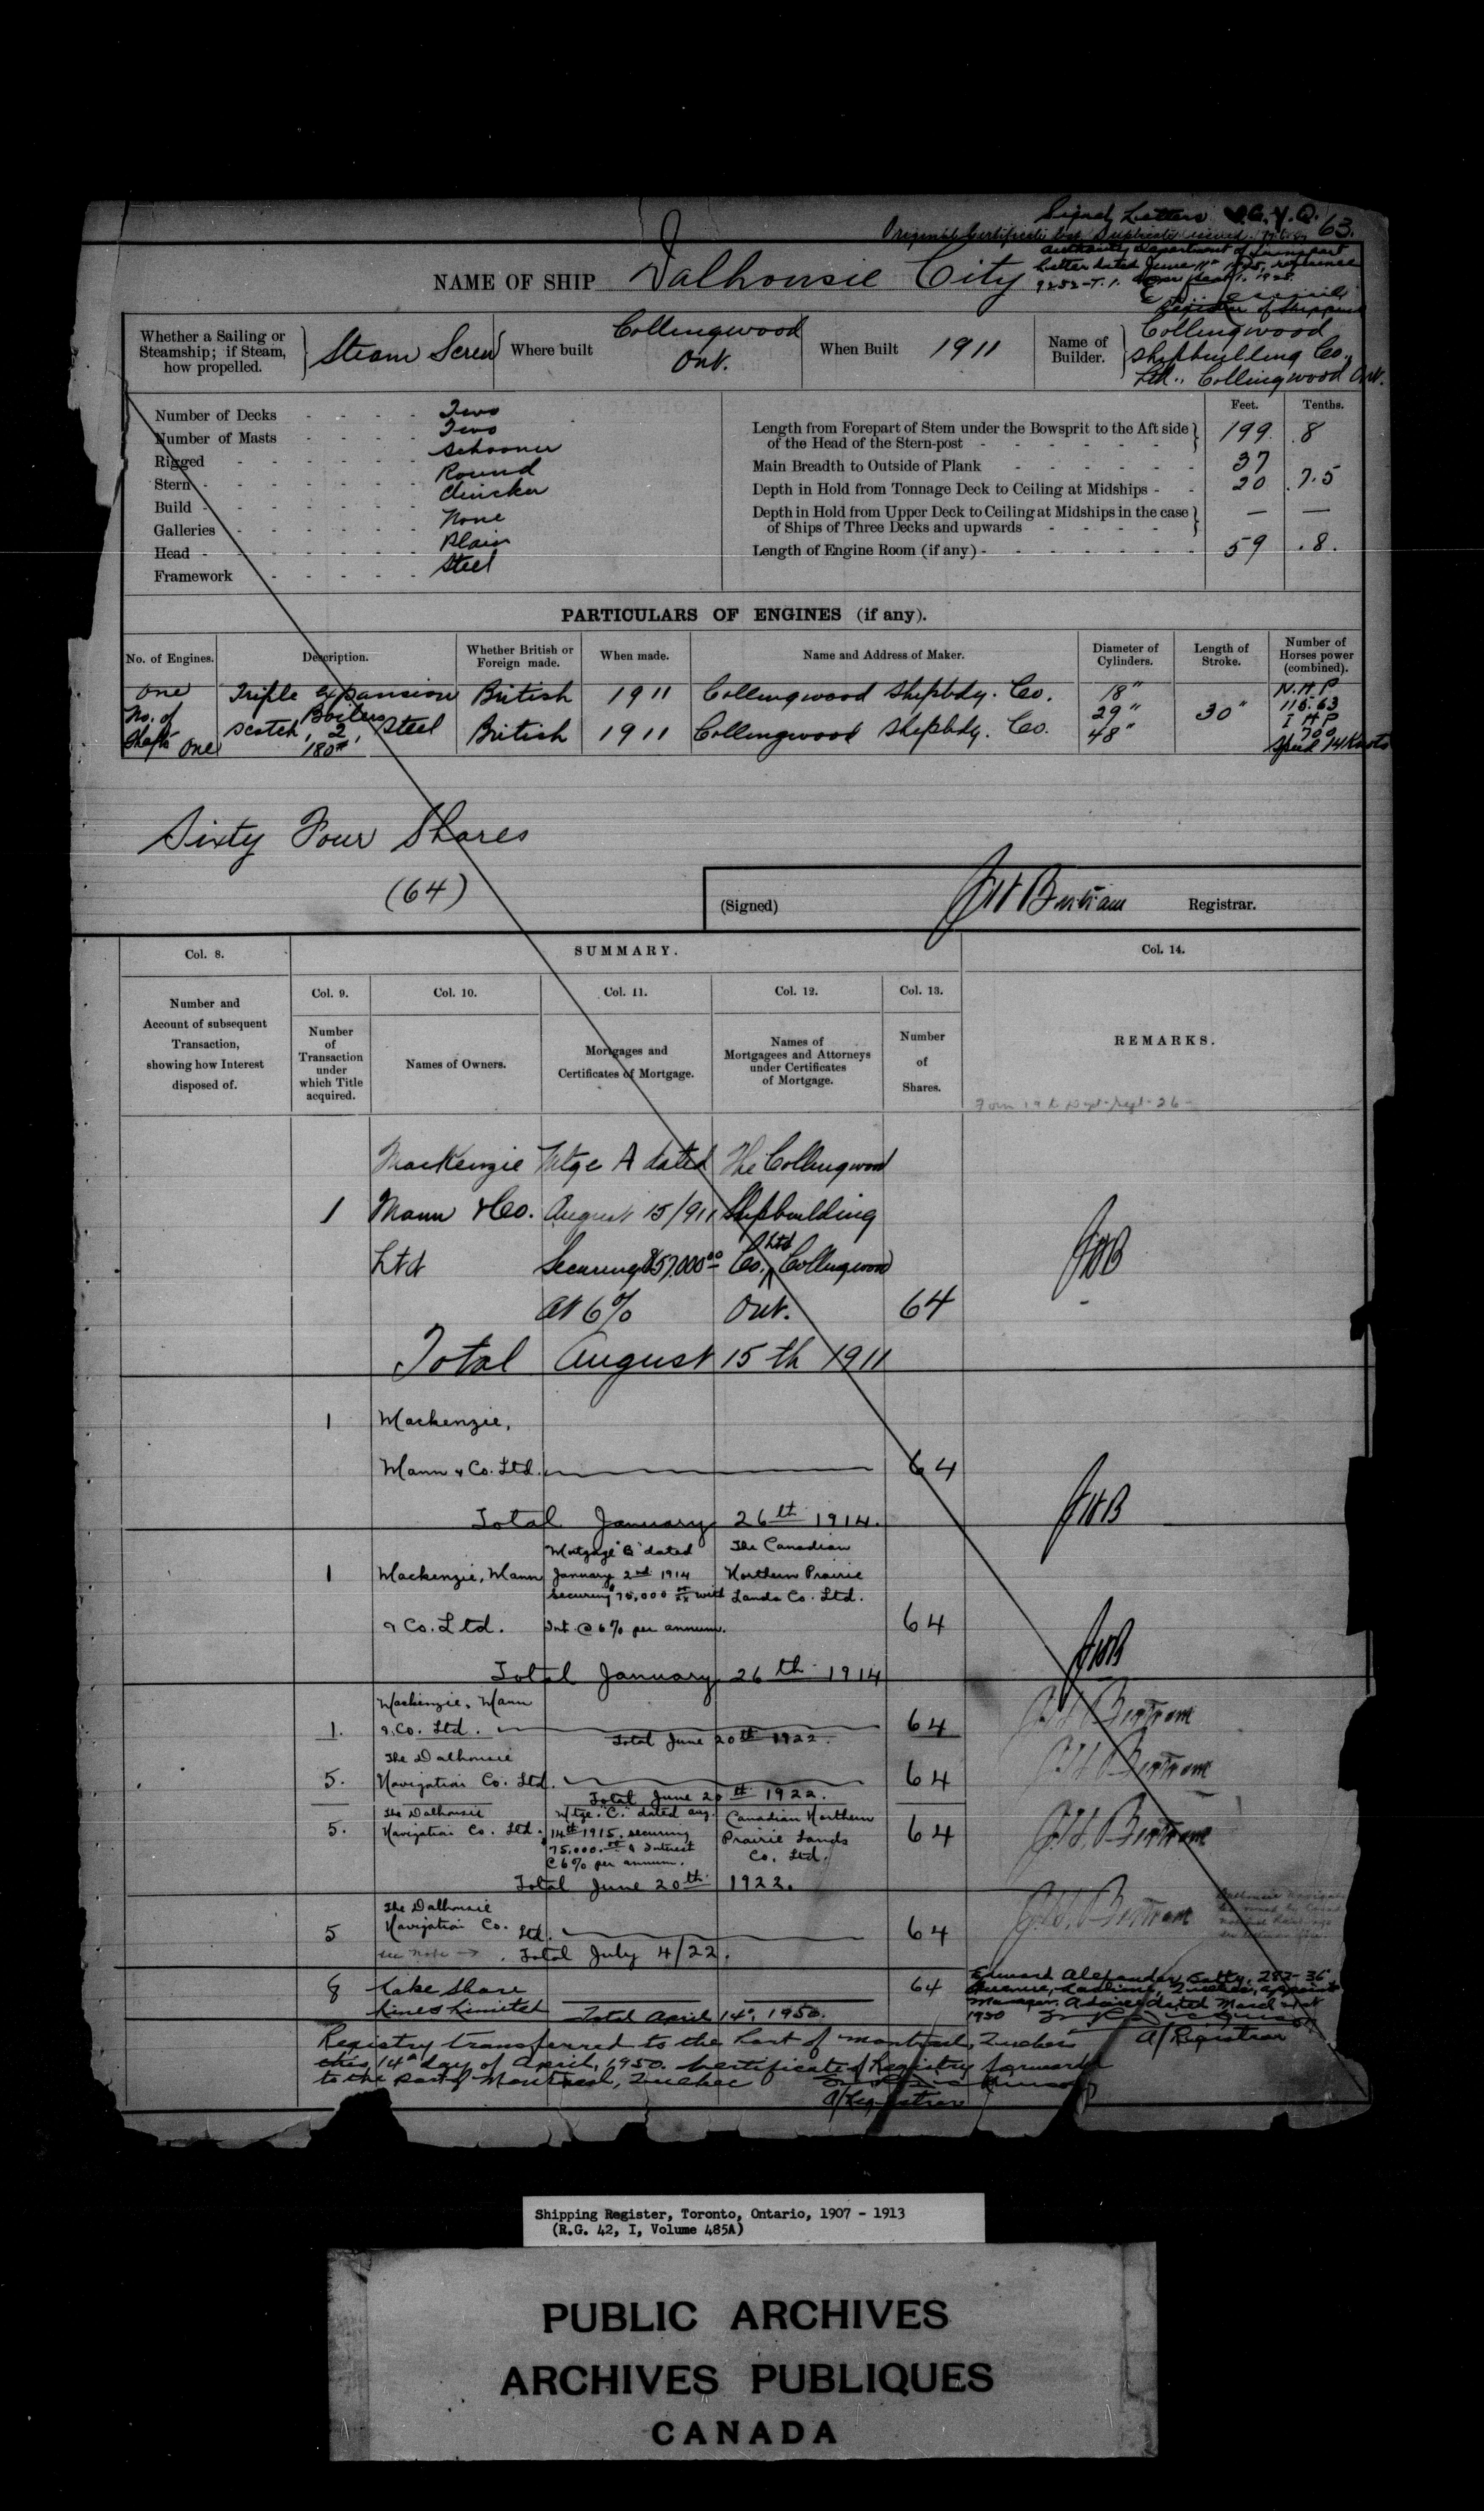 Signal Letters V.G.Y.Q.
63.
Original Certificate lost Duplicate issued
authority Department of Transport
letter dated June 11th reference
9282-T.1.
NAME OF SHIP Dalhousie City
Register of Shipping
Whether a Sailing or Steamship; if Steam, how propelled. Steam Screw Where built Collingwood Ont. When Built 1911 Name of Builder. Collingwood Shipbuilding Co., Ltd., Collingwood Ont.
Feet. Tenths.
Number of Decks - - - - Two
Number of Masts - - - - Two
Rigged - - - - - - Schooner
Stern - - - - - - Round
Build - - - - - - Clincker
Galleries - - - - - None
Head - - - - - - Plain
Framework - - - - - Steel
Length from Forepart of Stem under the Bowsprit to the Aft side of the Head of the Stern-post - - - - - 199. .8
Main Breadth to Outside of Plank - - - - - 37
Depth in Hold from Tonnage Deck to Ceiling at Midships - - 20 .7.5
Depth in Hold from Upper Deck to Ceiling at Midships in the case of Ships of Three Decks and upwards - - - - — —
Length of Engine Room (if any) - - - - - - - 59 .8.
PARTICULARS OF ENGINES (if any).
No. of Engines. Description. Whether British or Foreign made. When made. Name and Address of Maker. Diameter of Cylinders. Length of Stroke. Number of Horses power (combined).
One Triple Expansion British 1911 Collingwood Shipbdg. Co. 18" N.H.P
No. of Boilers 29" 30" 115.63
Shafts One Scotch, 2, Steel British 1911 Collingwood Shipbdg. Co. 48" I H P 700
180# Speed 14 Knots
Sixty Four Shares
(64)
(Signed) J H Bertram Registrar.
Col. 8. SUMMARY. Col. 14.
Col. 9. Col. 10. Col. 11. Col. 12. Col. 13.
Number and Account of subsequent Transaction, showing how Interest disposed of.
Number of Transaction under which Title acquired.
Names of Owners.
Mortgages and Certificates of Mortgage.
Names of Mortgagees and Attorneys under Certificates of Mortgage.
Number of Shares.
REMARKS.
MacKenzie Mtge A dated The Collingwood
1 Mann & Co. August 15/911 Shipbuilding
Ltd Securing $157,000 00 Co. Ltd Collingwood JHB
at 6% Ont. 64
Total August 15th 1911
1 Mackenzie,
Mann & Co. Ltd. 64
Total January 26th 1914. JHB
Mortgage "B" dated The Canadian
1 Mackenzie, Mann January 2nd 1914 Northern Prairie
securing $75,000 with Lands Co. Ltd.
& Co. Ltd. Int @ 6% per annum. 64
Total January 26th 1914 JHB
Mackenzie, Mann
1. & Co. Ltd. 64 J.H. Bertram
Total June 20th 1922.
The Dalhousie
5. Navigation Co. Ltd. 64 J.H. Bertram
Total June 20th 1922.
The Dalhousie Mtge. "C." dated aug. Canadian Northern
5. Navigation Co. Ltd. 14th 1915. securing Prairie Lands 64 J.H. Bertram
75.000. & Interest Co. Ltd.
@ 6% per annum.
Total June 20th 1922.
The Dalhousie
5 Navigation Co. Ltd. 64 J.H. Bertram
see note → Total July 4/22.
8 Lake Shore 64 Edward Alexander Batty, 282-36th
Lines Limited Avenue, Lachine, Quebec, appoint
Total April 14th, 1950. Manager. Advice dated March
1950
A/Registrar
Registry transferred to the Port of Montreal, Quebec
this 14th day of April, 1950. Certificate of Registry forwarded
to the port of Montreal, Quebec
A/Registrar
Shipping Register, Toronto, Ontario, 1907 - 1913
(R.G. 42, I, Volume 485A)
PUBLIC ARCHIVES
ARCHIVES PUBLIQUES
CANADA